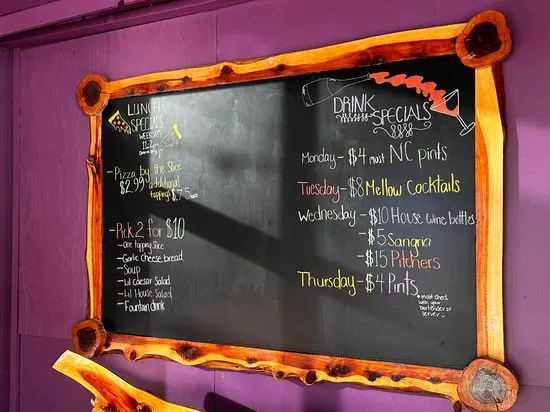 LUNCH
SPECIALS
WEEKDAYS
- Pizza by the Slice
$2.99 additional
topping
- Pick 2 for $10
- One topping slice
- Garlic cheese bread
- Soup
- Lil Caesar Salad
- Lil House Salad
- Fountain drink
DRINK
SPECIALS
$$$$
Monday - $4 most NC pints
Tuesday - $8 Mellow Cocktails
Wednesday - $10 House wine bottles
- $5 Sangria
- $15 Pitchers
Thursday - $4 Pints
* must check
with your
bartender or
server :)